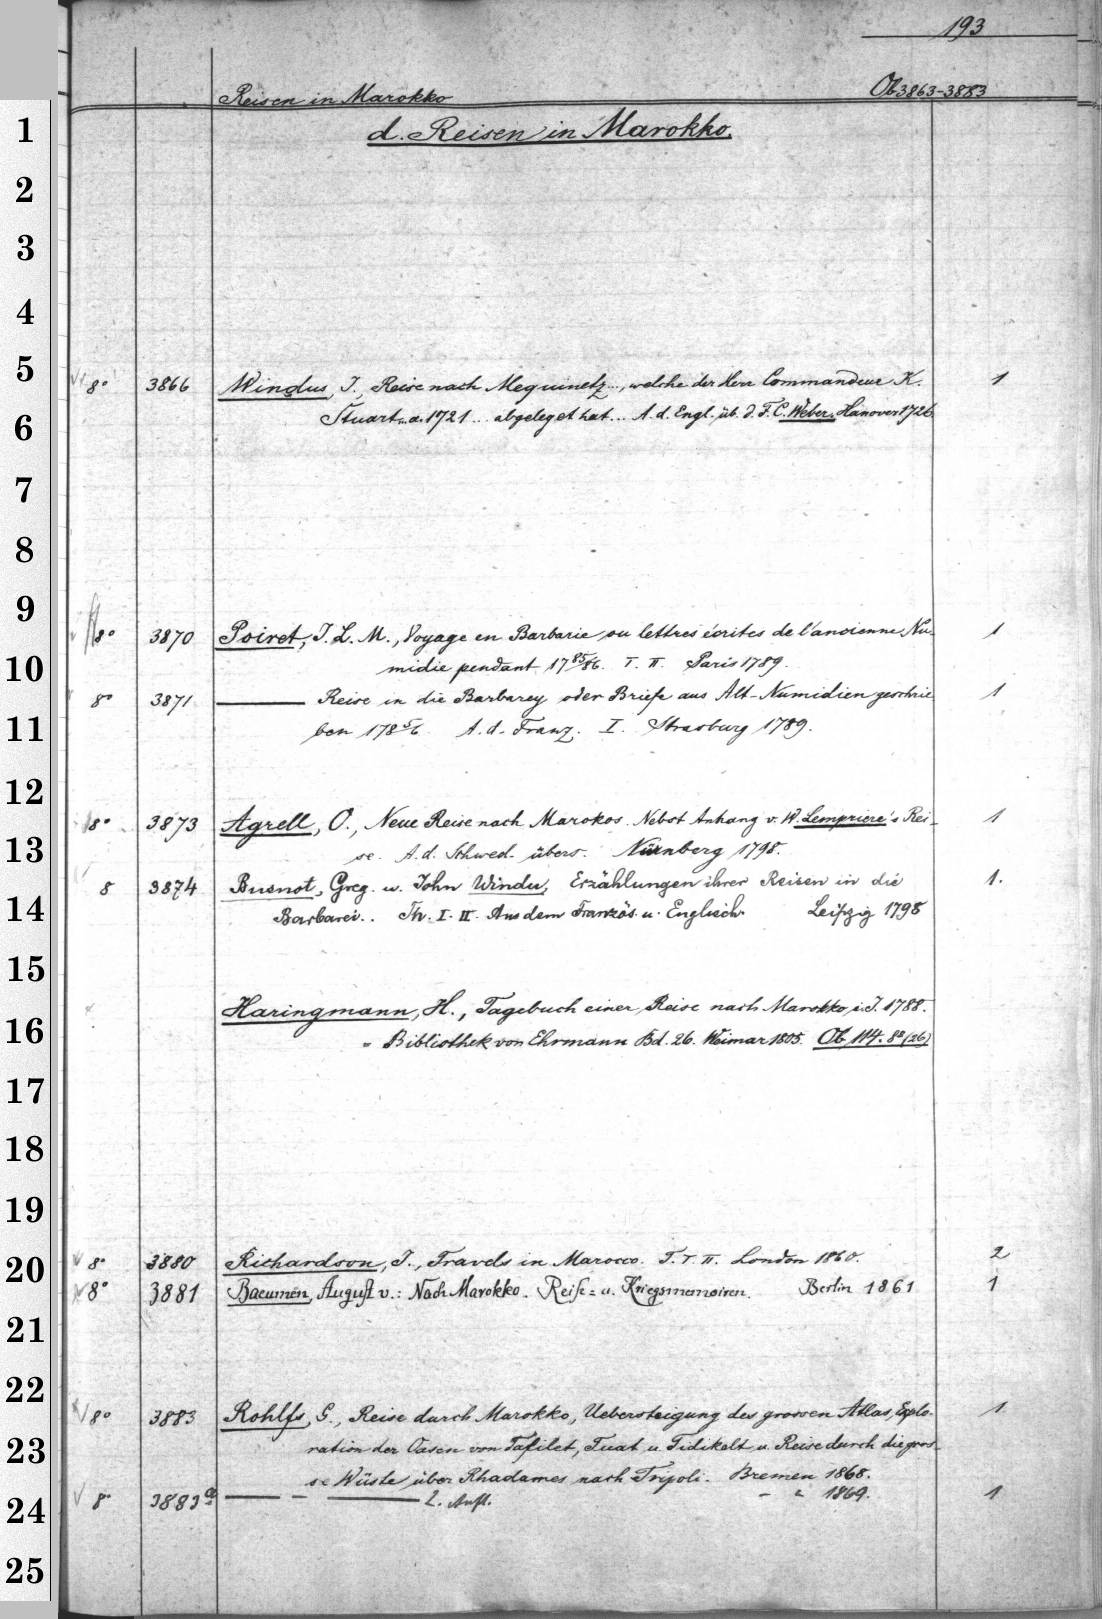 193
Reisen in Marokko Ob 3863-3883
1 d. Reisen in Marokko.
2
3
4
5 8° 3866 Windus, J., Reise nach Mequinetz..., welche der Herr Commandeur K. 1
6 Stuart .. a. 1721 ... abgeleget hat... A. d. Engl. üb. d. F. C. Weber. Hanover 1726
7
8
9 8° 3870 Poiret, J. L. M., Voyage en Barbarie ou lettres écrites de l'ancienne Nu- 1
10 midie pendant 1785/86. T. I. II. Paris 1789.
8° 3871 ——— Reise in die Barbarey oder Briefe aus Alt-Numidien geschrie- 1
11 ben 1785/6 A. d. Franz. I. Strasburg 1789.
12 8° 3873 Agrell, O., Neue Reise nach Marokos. Nebst Anhang v. W. Lempriere's Rei- 1
13 se. A. d. Schwed. übers. Nürnberg 1798.
8 3874 Busnot, Greg. u. John Windu, Erzählungen ihrer Reisen in die 1.
14 Barbarei.. Th. I. II. Aus dem Französ. u. Englisch. Leipzig 1798
15
Haringmann, H., Tagebuch einer Reise nach Marokko i. J. 1788.
16 = Bibliothek von Ehrmann Bd. 26. Weimar 1805. Ob 114. 8° (26)
17
18
19
20 8° 3880 Richardson, J., Travels in Marocco. T. I. II. London 1860. 2
8° 3881 Baeumen, August v.: Nach Marokko. Reise- u. Kriegsmemoiren. Berlin 1861 1
21
22 8° 3883 Rohlfs, G., Reise durch Marokko, Uebersteigung des grossen Atlas, Explo- 1
23 ration der Oasen von Tafilet, Tuat u. Tidikelt u. Reise durch die gros-
se Wüste über Rhadames nach Tripoli. Bremen 1868.
24 8° 3883a ——— — ——— 2. Aufl. — " 1869. 1
25